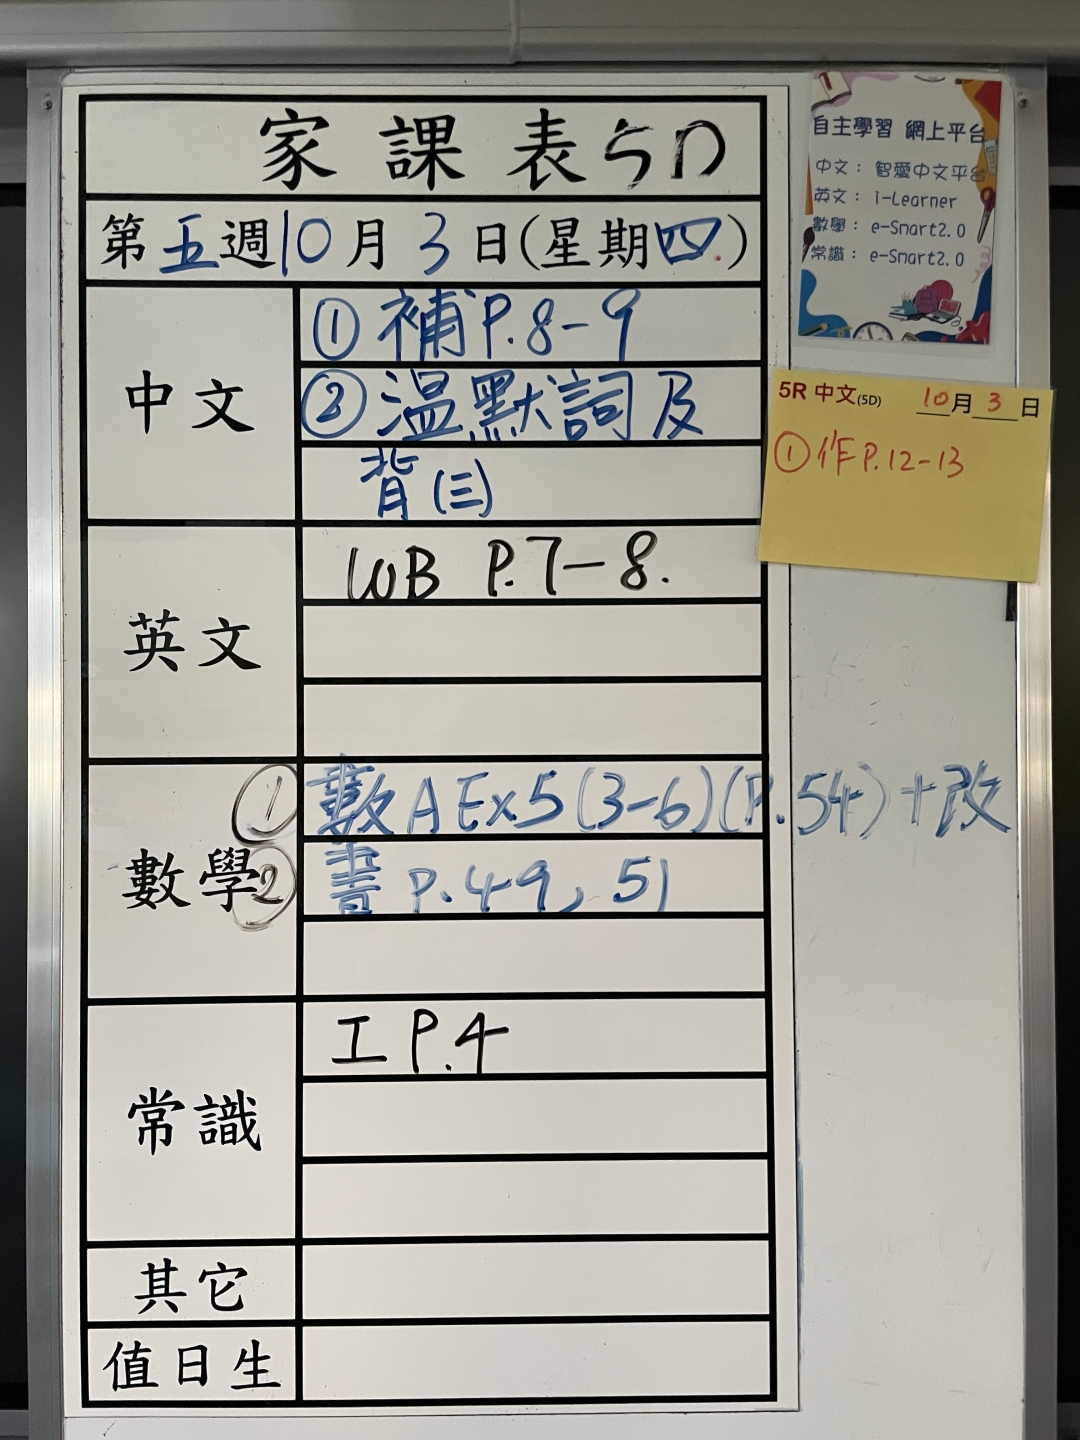 家課表5D
第五週10月3日(星期四)
中文
①補P.8-9
②溫默詞及
背(三)
英文
WB P.7-8.
數學
①數A Ex5(3-6)(P.54)+改
②書P.49, 51
常識
工P.4
其它
值日生
自主學習 網上平台
中文：智愛中文平台
英文：i-Learner
數學：e-Smart2.0
常識：e-Smart2.0
5R 中文(5D) 10月3日
①作P.12-13